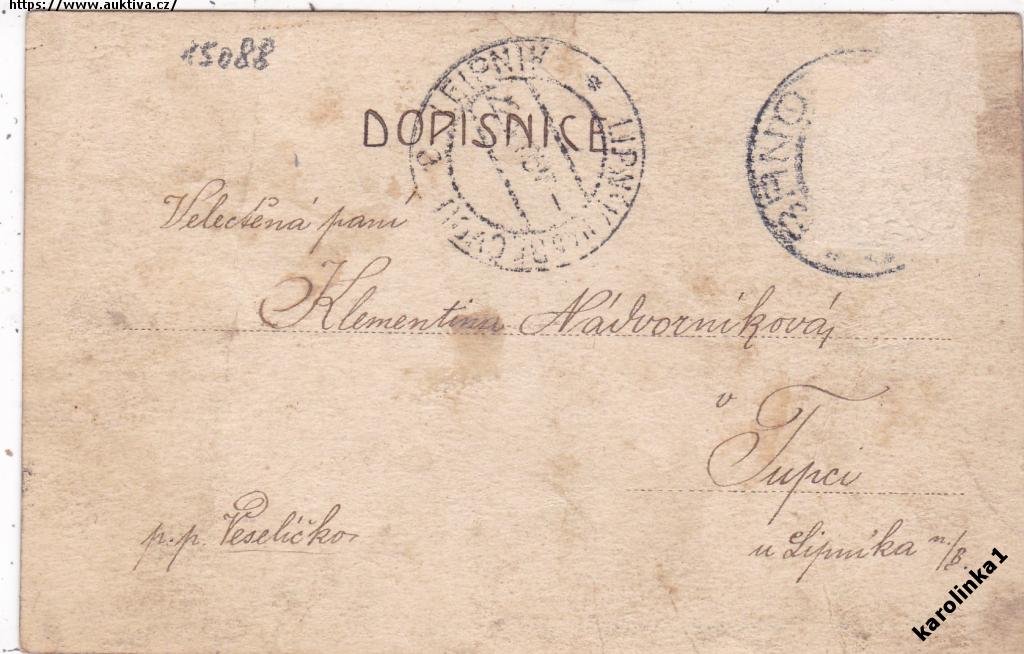 https://www.auktiva.cz/
15088
DOPISNICE
LIPNIK
Velectěná paní
Klementinu Nádvorníková,
v
Tupci
p.p. Veselíčko
u Lipníka n./B.
karolinka1